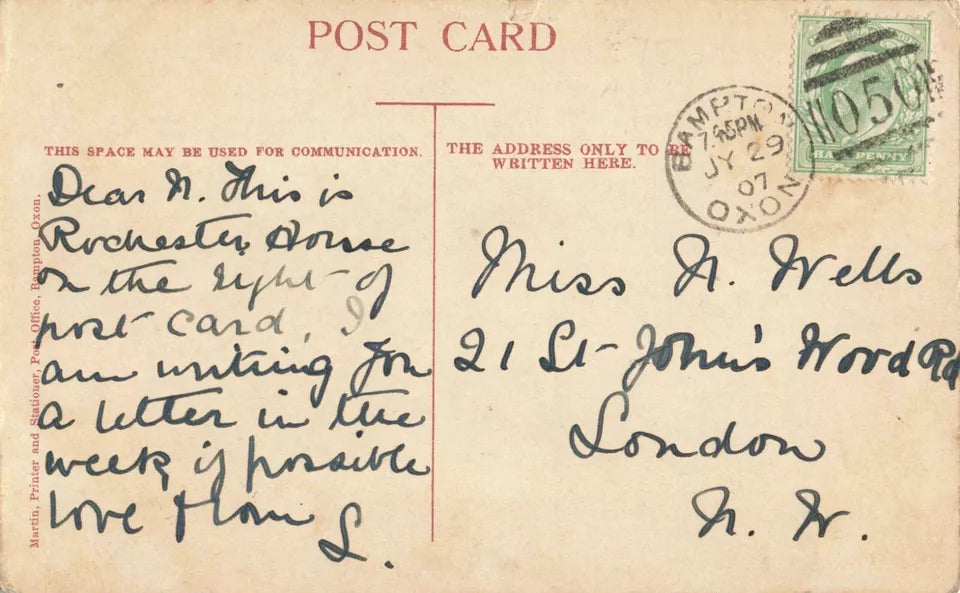 POST CARD
THIS SPACE MAY BE USED FOR COMMUNICATION.
THE ADDRESS ONLY TO BE
WRITTEN HERE.
Martin, Printer and Stationer, Post Office, Bampton, Oxon.
Dear N. This is
Rochester House
on the right of
post card, I
am writing you
a letter in the
week if possible
love from
L.
Miss N. Wells
21 St Johns Wood Rd
London
N. W.
BAMPTON
7.45PM
JY 29
07
OXON
050
HALF PENNY